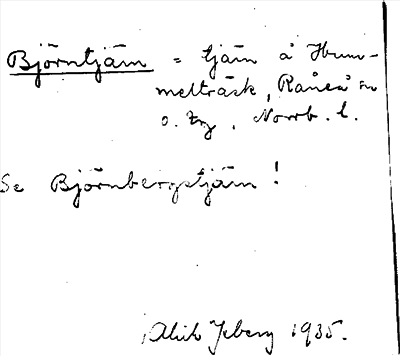 Björntjärn = tjärn å Hum-
melträsk, Råneå sn
o. tg, Norrb. l.
Se Björnbergstjärn!
1935.